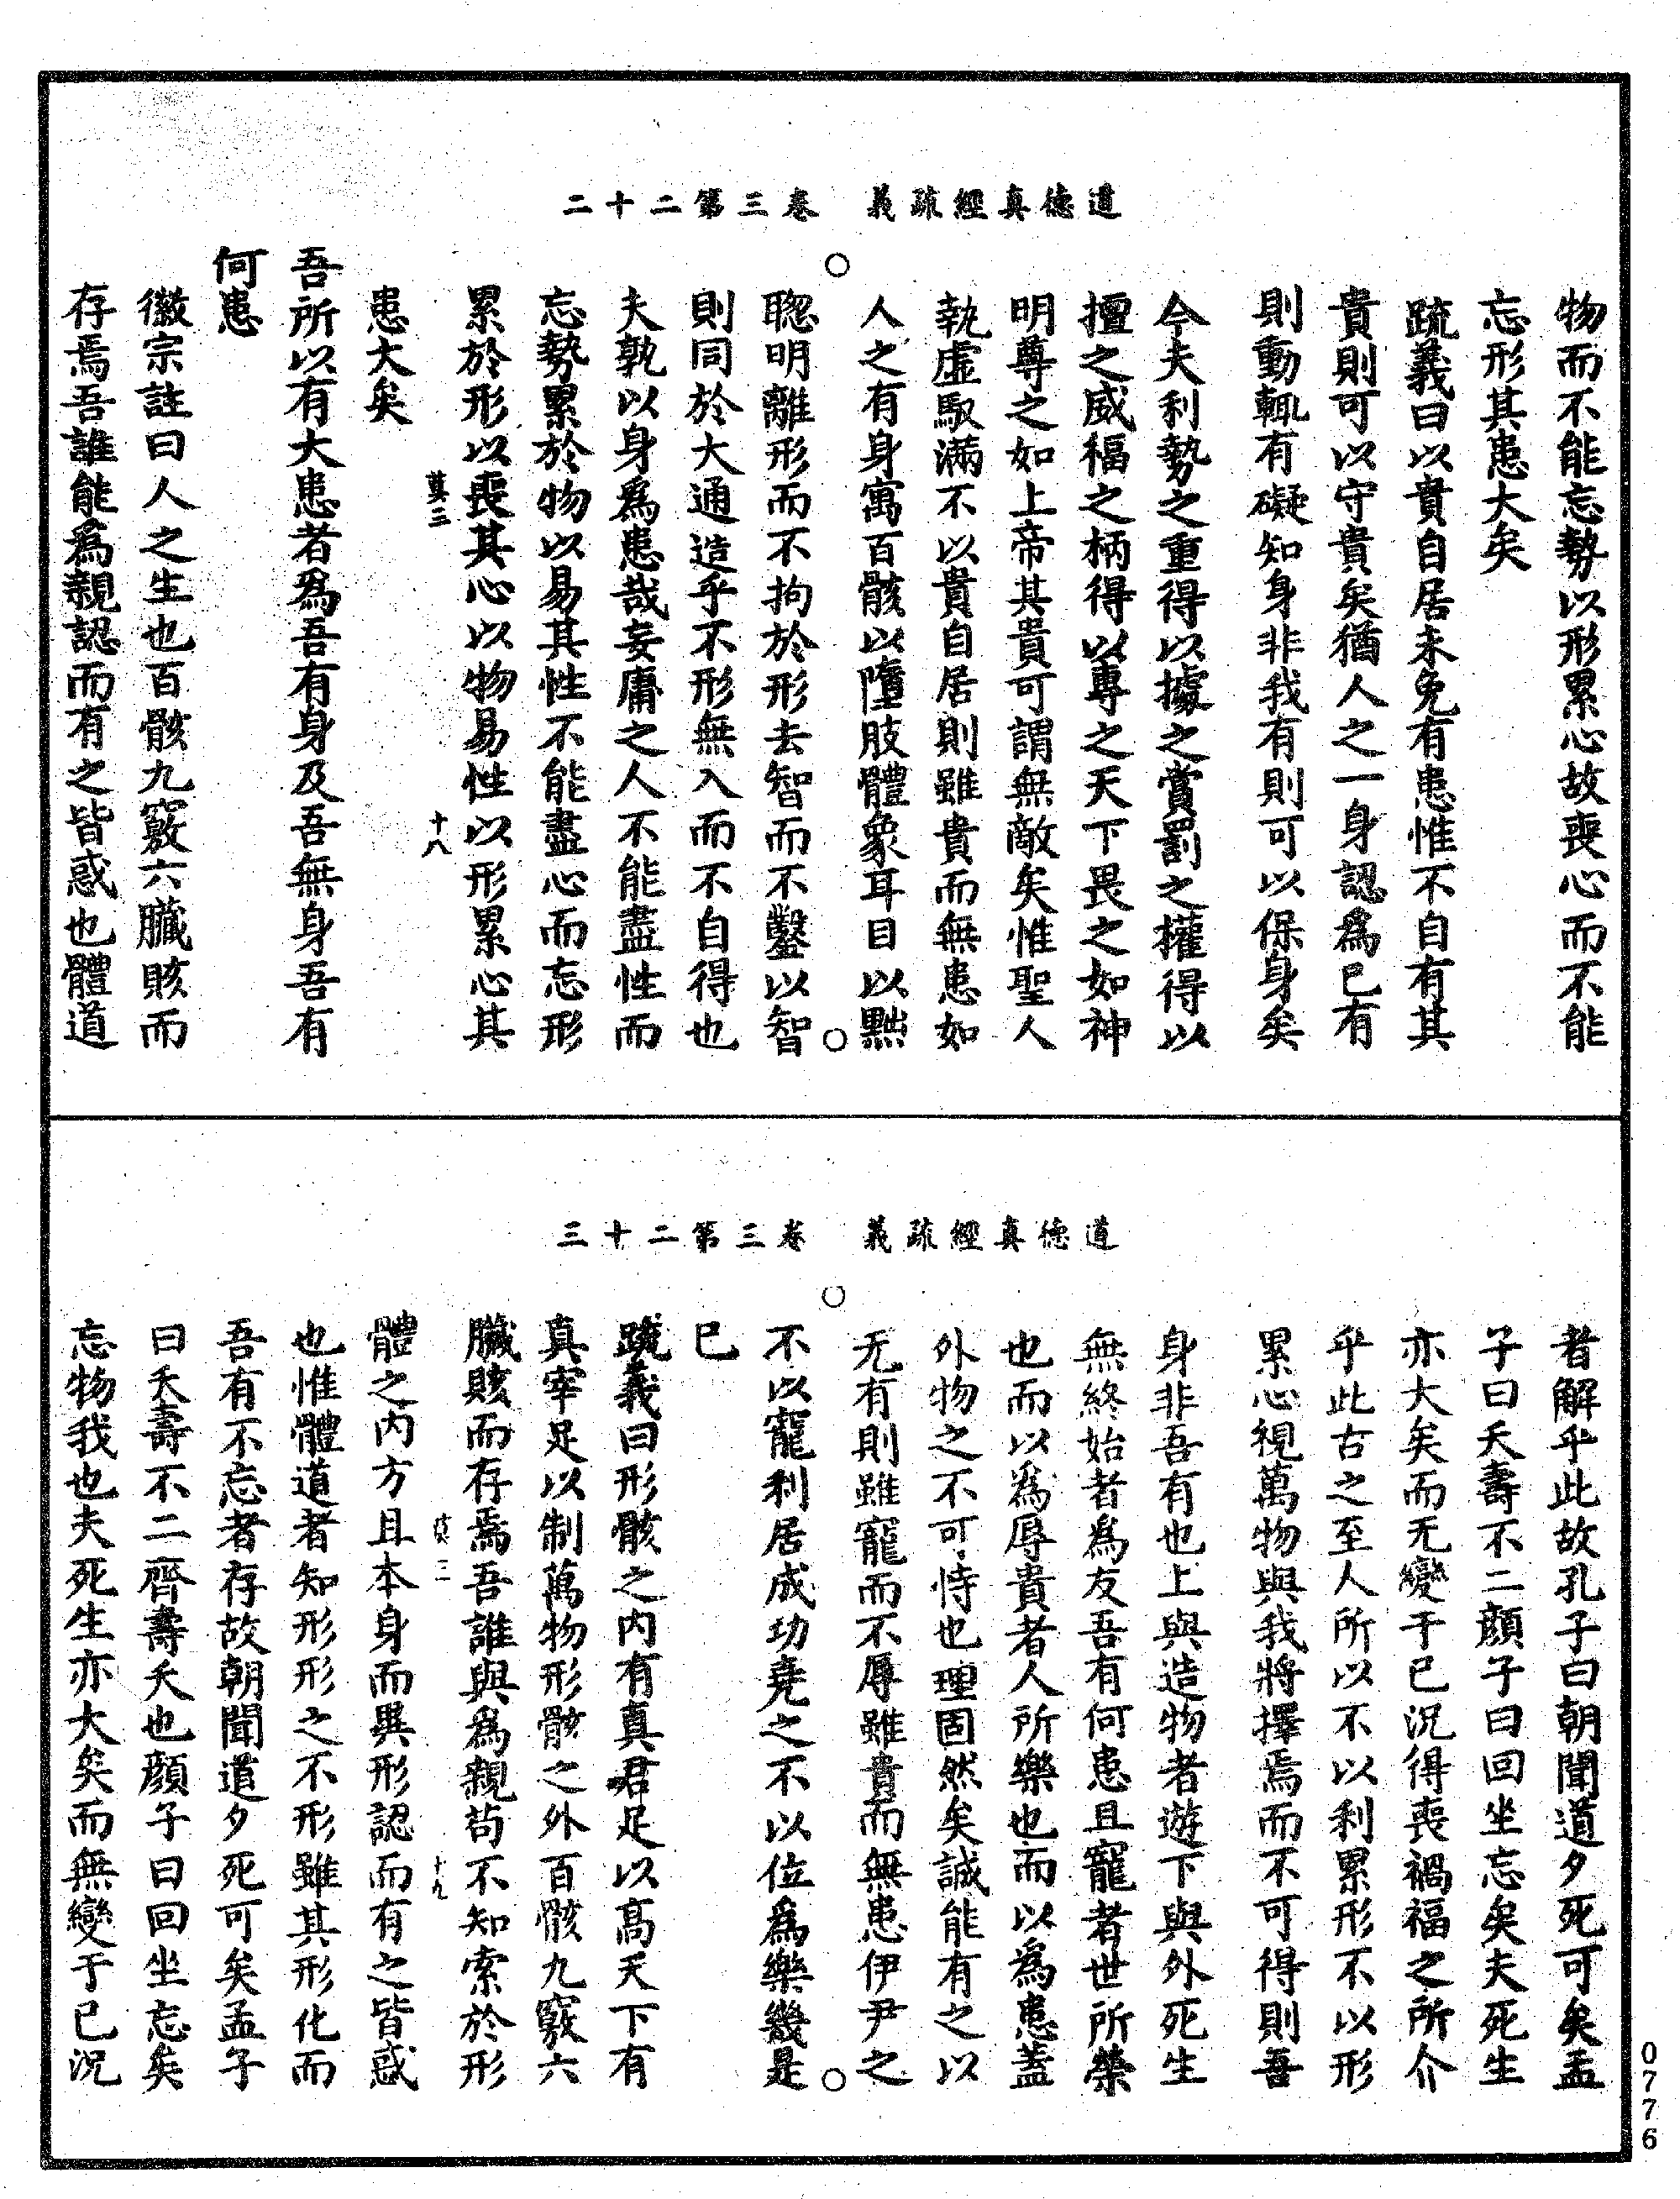 道德真經疏義　卷三第二十二
物而不能忘勢以形累心故喪心而不能
忘形其患大矣
疏義曰以貴自居未免有患惟不自有其
貴則可以守貴矣猶人之一身認爲己有
則動輒有礙知身非我有則可以保身矣
今夫利勢之重得以據之賞罰之權得以
擅之威福之柄得以專之天下畏之如神
明尊之如上帝其貴可謂無敵矣惟聖人
執虛馭滿不以貴自居則雖貴而無患如
人之有身寓百骸以墮肢體象耳目以黜
聰明離形而不拘於形去智而不鑿以智
則同於大通造乎不形無入而不自得也
夫孰以身爲患哉妄庸之人不能盡性而
忘勢累於物以易其性不能盡心而忘形
累於形以喪其心以物易性以形累心其
莫三　十八
患大矣
吾所以有大患者爲吾有身及吾無身吾有
何患
徽宗註曰人之生也百骸九竅六臟賅而
存焉吾誰能爲親認而有之皆惑也體道
道德真經疏義　卷三第二十三
者解乎此故孔子曰朝聞道夕死可矣孟
子曰夭壽不二顏子曰回坐忘矣夫死生
亦大矣而无變于己況得喪禍福之所介
乎此古之至人所以不以利累形不以形
累心視萬物與我將擇焉而不可得則吾
身非吾有也上與造物者遊下與外死生
無終始者爲友吾有何患且寵者世所榮
也而以爲辱貴者人所樂也而以爲患蓋
外物之不可恃也理固然矣誠能有之以
无有則雖寵而不辱雖貴而無患伊尹之
不以寵利居成功堯之不以位爲樂幾是
已
疏義曰形骸之內有真君足以高天下有
真宰足以制萬物形骸之外百骸九竅六
臟賅而存焉吾誰與爲親苟不知索於形
莫三　十九
體之內方且本身而異形認而有之皆惑
也惟體道者知形形之不形雖其形化而
吾有不忘者存故朝聞道夕死可矣孟子
曰夭壽不二齊壽夭也顏子曰回坐忘矣
忘物我也夫死生亦大矣而無變于已況
0776